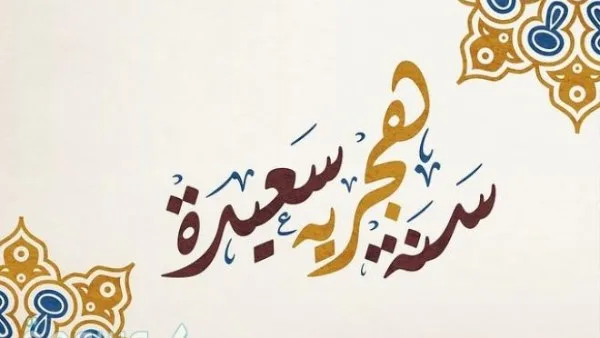 سَنة هجريه سَعيدة